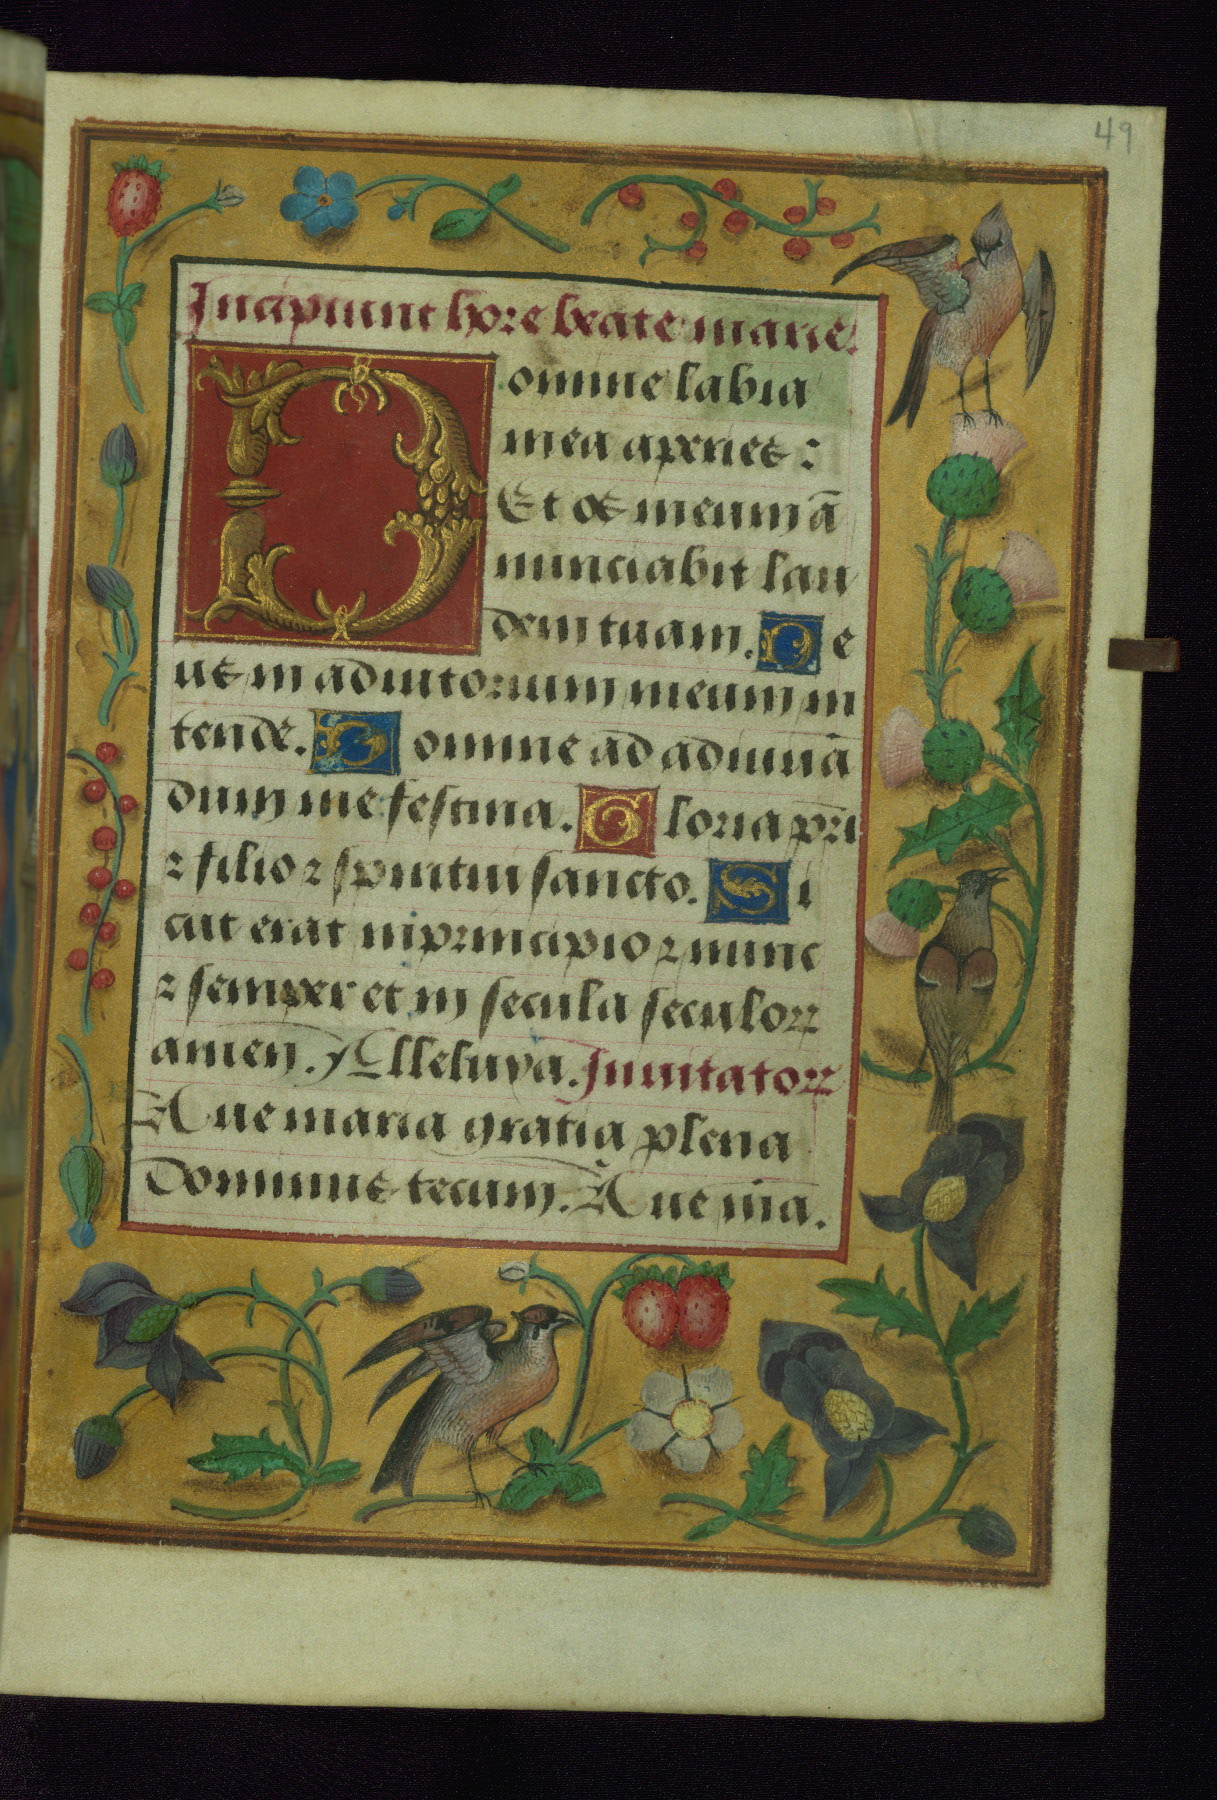 49
Incipiunt hore beate marie.
Domine labia
mea aperies:
Et os meum ā
nunciabit lau
dem tuam. De
us in adiutorium meum in
tende. Domine ad adiuuā
dum me festina. Gloria pr̄i
⁊ filio ⁊ spiritui sancto. Si
cut erat in principio ⁊ nunc
⁊ semper et in secula seculoꝝ
amen. Alleluya. Inuitatoꝝ
Aue maria gratia plena
dominus tecum. Aue m̄ia.